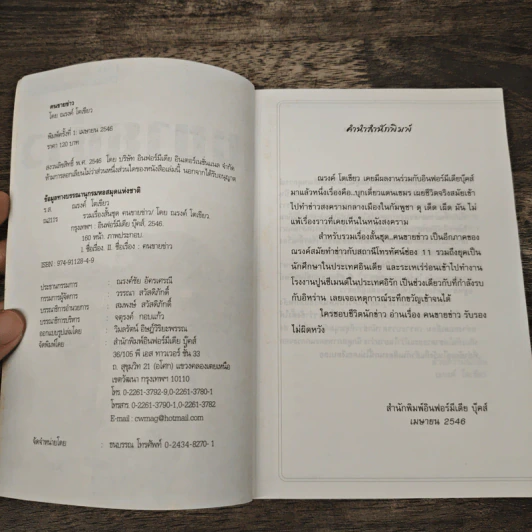 คนขายข่าว
โดย ณรงค์ โตเขียว
พิมพ์ครั้งที่ 1: เมษายน 2546
ราคา 120 บาท
สงวนลิขสิทธิ์ พ.ศ. 2546 โดย บริษัท อินฟอร์มีเดีย อินเตอร์เนชั่นแนล จำกัด
ห้ามการลอกเลียนไม่ว่าส่วนหนึ่งส่วนใดของหนังสือเล่มนี้ นอกจากได้รับอนุญาต
ข้อมูลทางบรรณานุกรมหอสมุดแห่งชาติ
ร.ศ. ณรงค์ โตเขียว
รวมเรื่องสั้นชุด คนขายข่าว/ โดย ณรงค์ โตเขียว.
กรุงเทพฯ : อินฟอร์มีเดีย บุ๊คส์, 2546.
160 หน้า. ภาพประกอบ.
I. ชื่อเรื่อง. II. ชื่อเรื่อง : คนขายข่าว
ISBN: 974-91128-4-9
ประธานกรรมการ : ณรงค์ชัย อัครเศรณี
กรรมการผู้จัดการ : วรรณา สวัสดิภักดิ์
บรรณาธิการอำนวยการ : สมพงษ์ สวัสดิภักดิ์
บรรณาธิการบริหาร : จตุรงค์ กอบแก้ว
ออกแบบรูปเล่มโดย : วิมลรัตน์
จัดพิมพ์โดย : สำนักพิมพ์อินฟอร์มีเดีย บุ๊คส์
36/105 พี เอส ทาวเวอร์ ชั้น 33
ถ. สุขุมวิท 21 (อโศก) แขวงคลองเตยเหนือ
เขตวัฒนา กรุงเทพฯ 10110
โทร. 0-2261-3790-1,0-2261-3780-1
โทรสาร 0-2261-3790-1,0-2261-3782
E-mail : cwmag@hotmail.com
จัดจำหน่ายโดย : ธนบรรณ โทรศัพท์ 0-2434-8270-1
คำนำสำนักพิมพ์
ณรงค์ โตเขียว เคยมีผลงานร่วมกับอินฟอร์มีเดียบุ๊คส์
มาแล้วหนึ่งเรื่องคือ..บุกเดี่ยวแดนเขมร เผยชีวิตจริงสมัยเข้า
ไปทำข่าวสงครามกลางเมืองในกัมพูชา ดุ เด็ด เผ็ด มัน ไม่
แพ้เรื่องราวที่เคยเห็นในหนังสงคราม
สำหรับรวมเรื่องสั้นชุด..คนขายข่าว เป็นอีกภาคของ
ณรงค์สมัยทำข่าวกับสถานีโทรทัศน์ช่อง 11 รวมถึงยุคเป็น
นักศึกษาในประเทศอินเดีย และระเหเร่ร่อนเข้าไปทำงาน
โรงงานปูนซีเมนต์ในประเทศอิรัก เป็นช่วงเดียวกับที่กำลังรบ
กับอิหร่าน เลยเจอเหตุการณ์ระทึกขวัญเข้าจนได้
ใครชอบชีวิตนักข่าว อ่านเรื่อง คนขายข่าว รับรอง
ไม่ผิดหวัง
สำนักพิมพ์อินฟอร์มีเดีย บุ๊คส์
เมษายน 2546